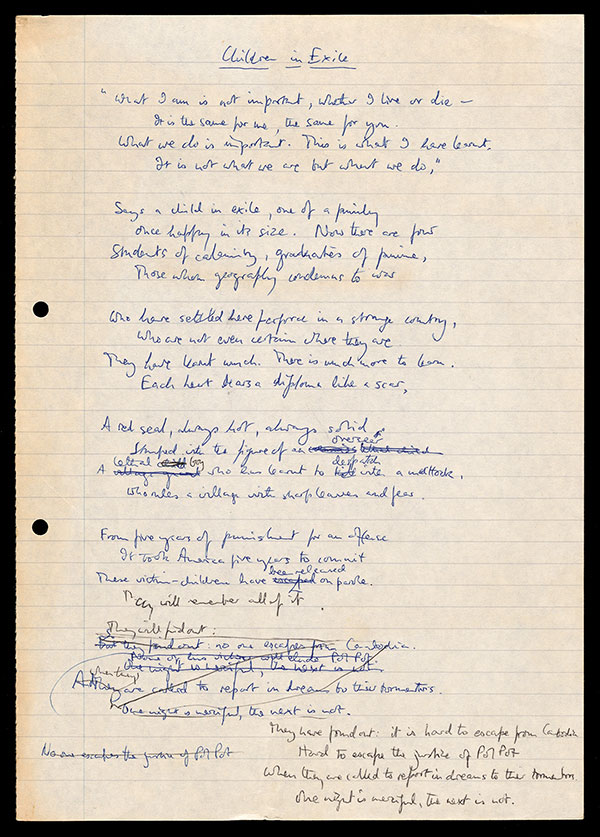 Children in Exile
"What I am is not important, whether I live or die –
It is the same for me, the same for you.
What we do is important. This is what I have learnt.
It is not what we are but what we do,"
Says a child in exile, one of a family
once happy in its size. Now there are four
Students of calamity, graduates of famine,
Those whom geography condemns to war
Who have settled here perforce in a strange country,
Who are not even certain where they are
They have learnt much. There is much more to learn.
Each heart bears a diploma like a scar,
A red seal, always hot, always solid
overseer
Stamped with the figure of an
lethal boy despatch
A village who has learnt to kill with a mattock,
Who rules a village with sharp leaves and fear.
From five years of punishment for an offence
It took America five years to commit
been released
These victim-children have escaped on parole.
They will remember all of it.
They will find out:
But they found out: no one escapes from Cambodia.
None of his victims will elude Pol Pot.
One night is merciful, the next is not.
when they
And they are called to report in dreams to their tormentors.
One night is merciful, the next is not.
They have found out: it is hard to escape from Cambodia
No one escapes the justice of Pol Pot
Hard to escape the justice of Pol Pot
When they are called to report in dreams to their tormentors
One night is merciful, the next is not.